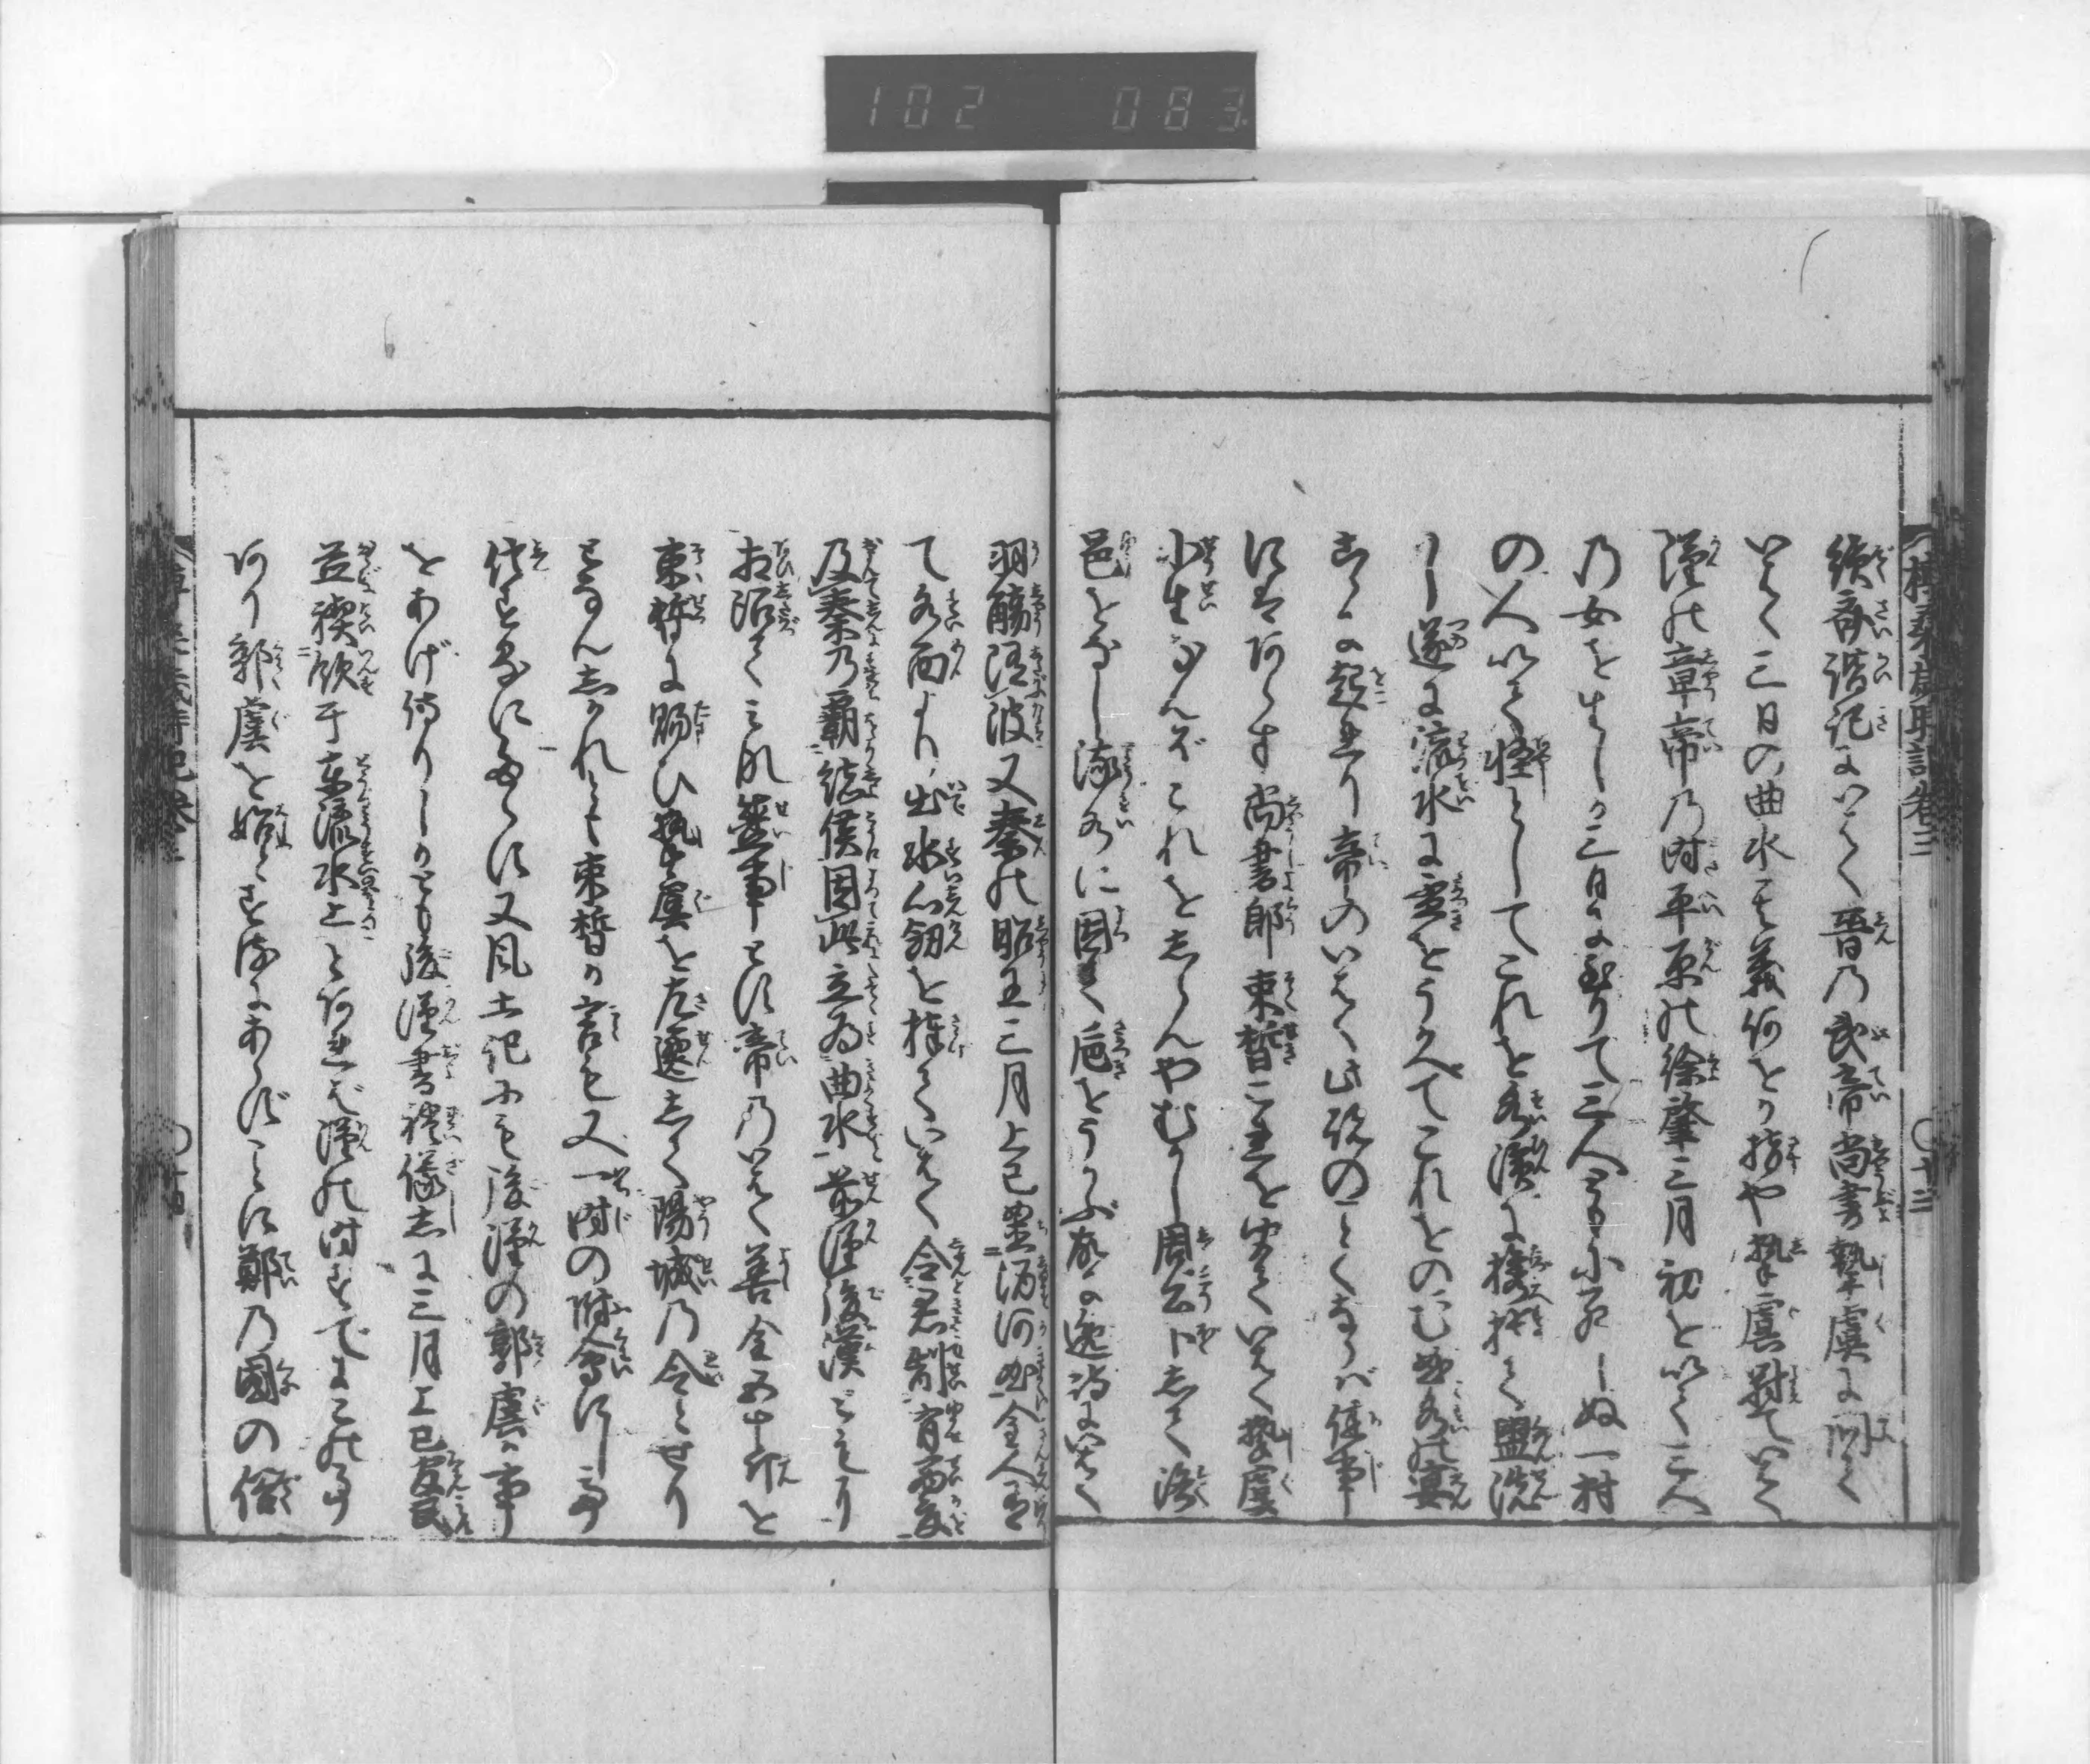 102 083
續斉諧記にいはく晋の武帝尚書摯虞に問て
いはく三日の曲水其義何をか指や摯虞對ていはく
漢の章帝の時平原の徐肇三月初を以て三人
の女を生しか三日に至りて三人ともに死しぬ一村
の人以て怪としてこれを水濱に携持て盥洗
し遂に流水に盃をうかべてこれをのむ曲水の宴
これより起れり帝のいはく此説のごとくならば佳事
にはあらず尚書郎束晳こゝを聞ていはく摯虞
小生なんぞこれをしらんやむかし周公卜して洛
邑をなし流水に因て巵をうかぶ故に逸詩にいはく
羽觴隨波又秦の昭王三月上巳置酒河曲金人有
て水面より出水心剱を捧ていはく令君制有西夏
及秦乃覇諸侯因此立為曲水前漢後漢ともに
相沿てこれ盛事とす帝のいはく善金五十斤を
束晳に賜ひ摯虞を左遷して陽城の令とせり
となんしかれども束晳か言も又一時の附會にして
信とするにたらず又風土記にも後漢の郭虞か事
をあげ侍りしかども後漢書禮儀志に三月上巳官民
並禊飲于東流水上とあれば漢の時すでにこの事
あり郭虞を始とするにあらずことに鄭の國の俗